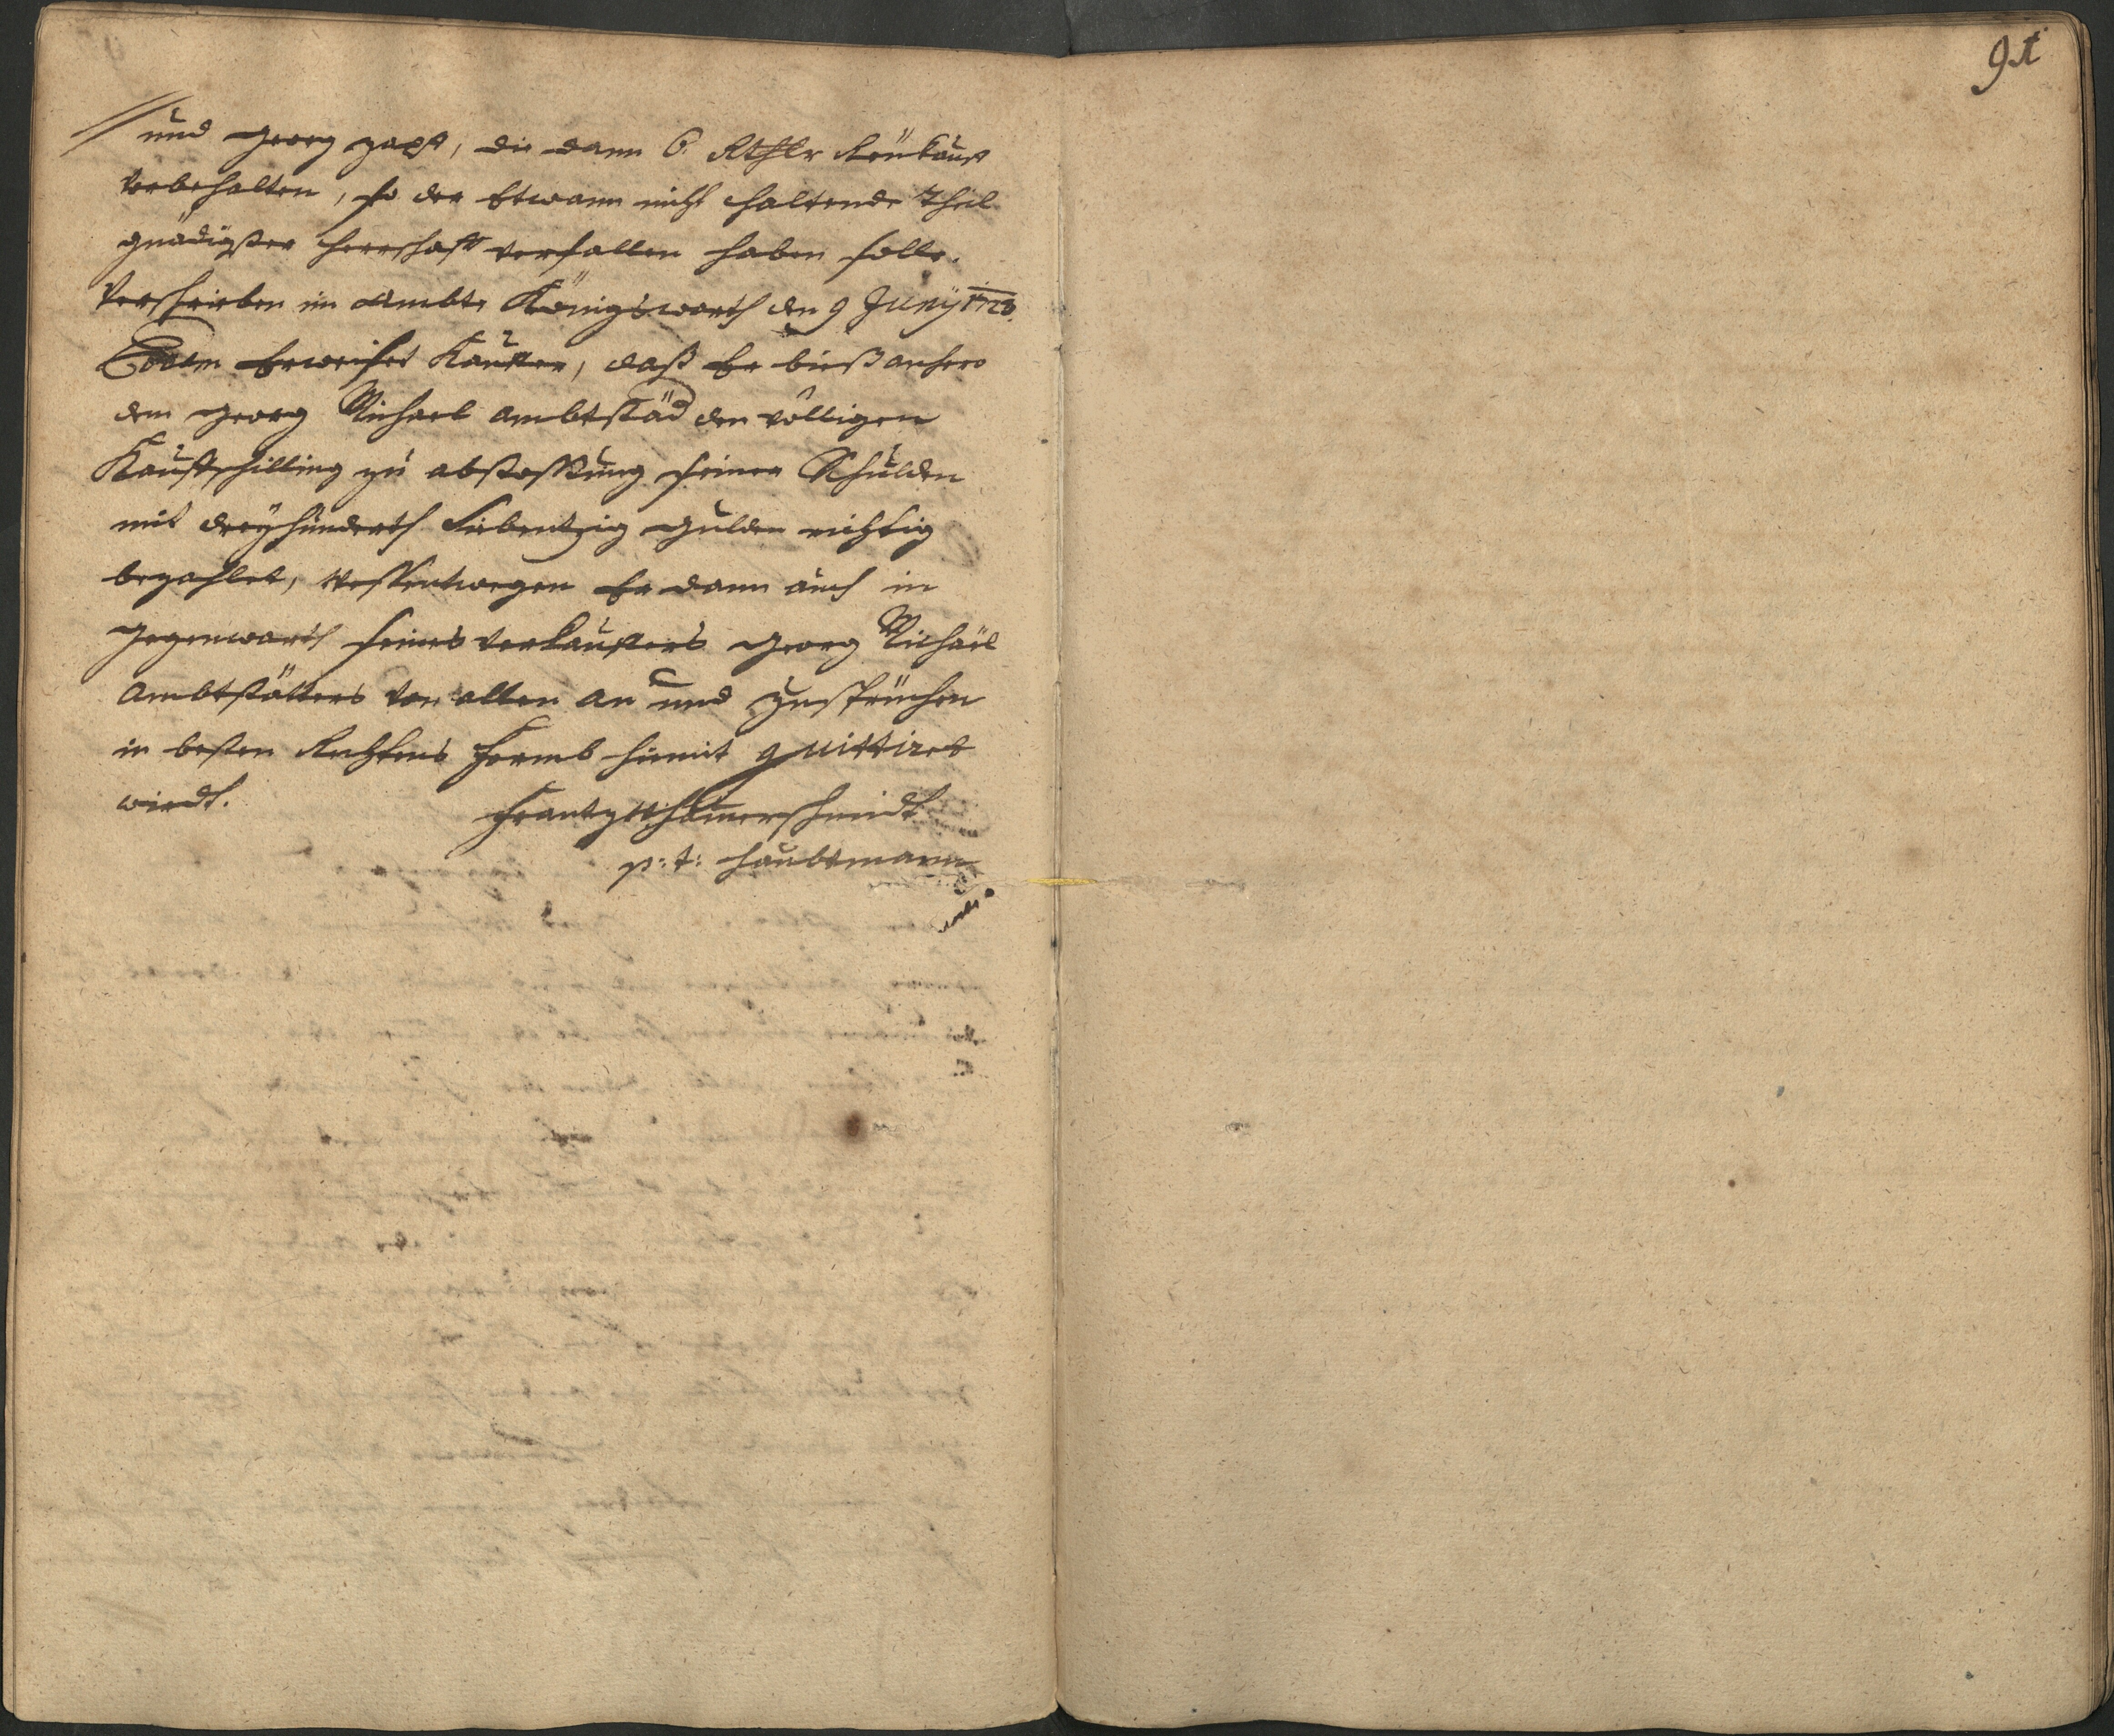 91
// und Georg Zapf, die dann 6. Rthlr Reükauf
Vorbehalten, so der Etwann nicht haltende Theil
gnädigster Herrschaft verfallen haben solle.
Verschrieben im Ambte Königswarth den 9 Junÿ 1728.
Eodem Erweiset Kauffer, daß Er bießanhero
dem Georg Michael Ambtstäd den völligen
Kaufschilling zu abstossung seiner Schulden
mit dreÿhunderth Siebentzig gulden richtig
bezahlet, Wessentwegen Er dann auch in
gegenwarth seines Verkauffers Georg Michäel
Ambtstätters Von allen an und Zusprüchen
in besten Rechtens Formb hiemit quittiret
wirdt.
Frantz
p: t: Haubtmann